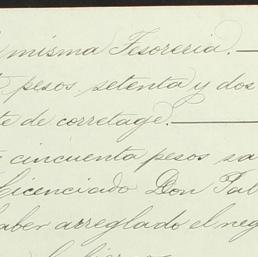 misma Tesoreria.
pesos setenta y dos
de corretage.
cincuenta pesos
Licenciado Don
haber arreglado el neg